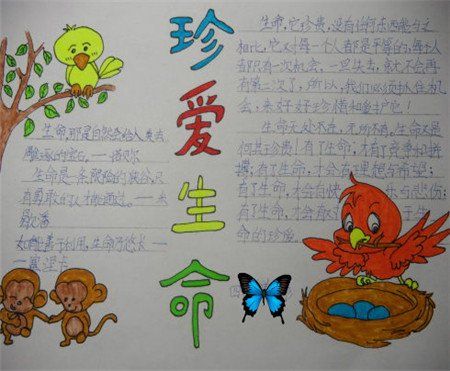 珍爱生命
生命,那是自然会给人类去
雕琢的宝石。——诺贝尔
生命是一条艰险的狭谷,只
有勇敢的人才能通过。——米
歇潘
如能善于利用,生命乃悠长——
—塞涅卡
生命,它珍贵,没有任何东西能与之
相比,它对每一个人都是平等的,每个人
都只有一次机会,一旦失去,就不会再
有第二次了,所以,我们必须抓住机
会,来好好珍惜和爱护它!
生命无处不在,无所不有,生命又是
何其珍贵!有了生命,才有了竞争的拼
搏;有了生命,才会有理想与希望;
有了生命,才会 与悲伤;
有了生命,才会 于生
命的珍爱。